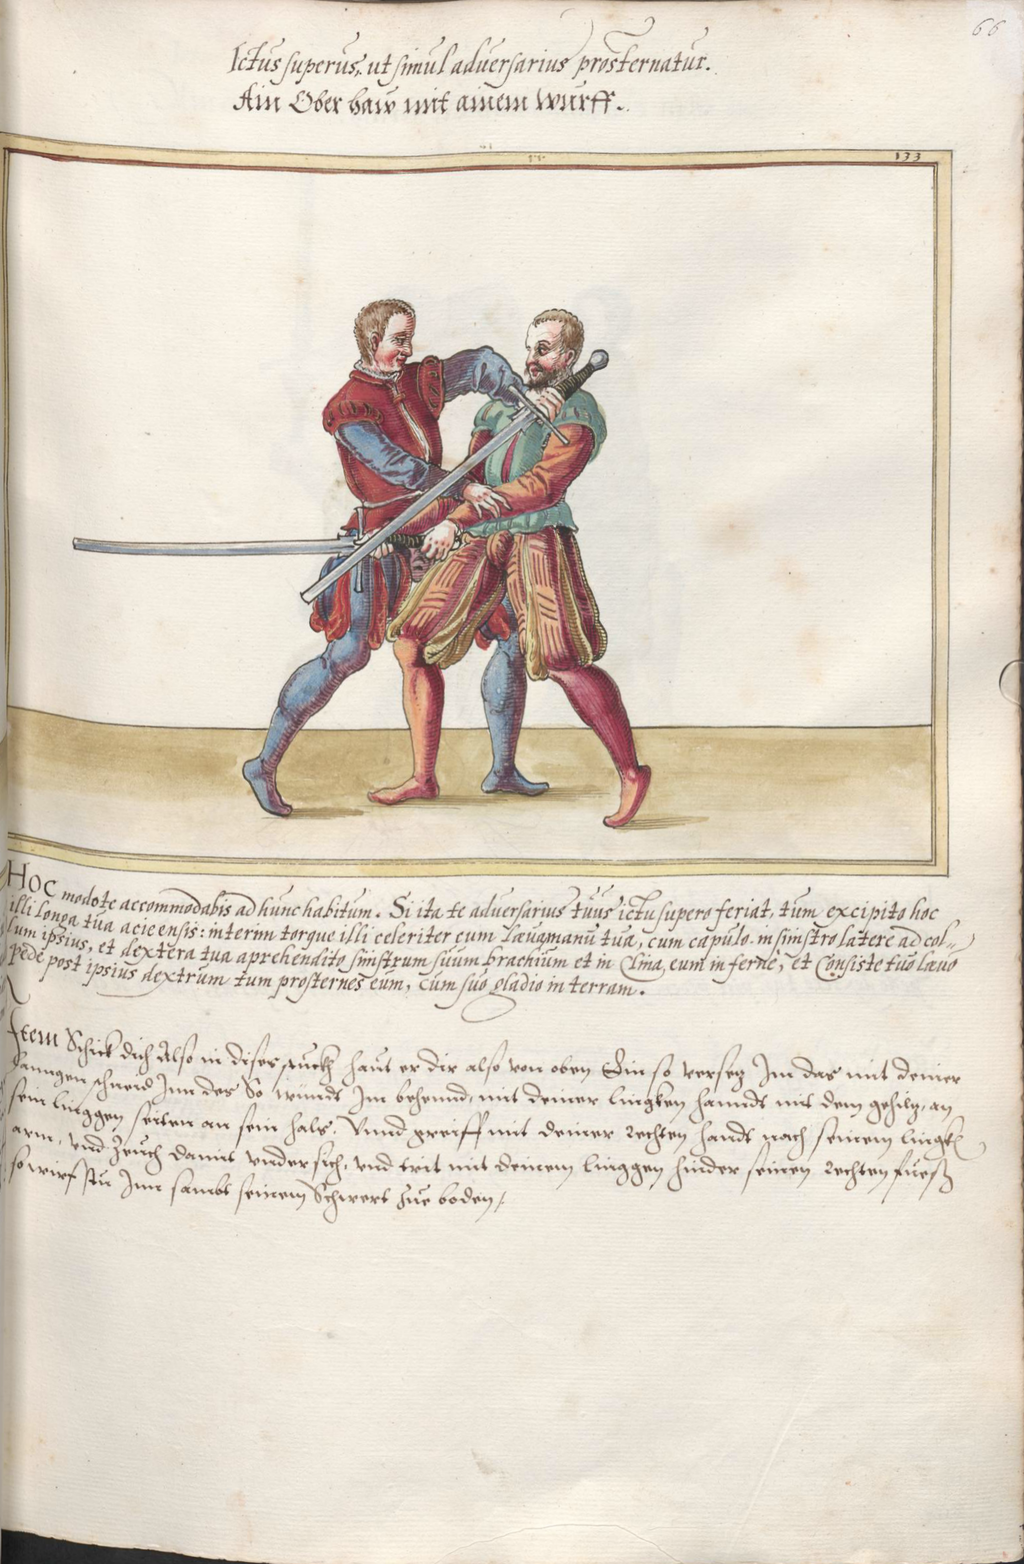 66
Ictus superus, ut simul adversarius prosternatur.
Ain Ober haw mit ainem wurff.
133
Hoc modo te accommodabis ad hunc habitum. Si ita te adversarius tuus ictu supero feriat, tum excipito hoc
illi longa tua acie ensis: interim torque illi celeriter cum laeva manu tua, cum capulo in sinistro latere ad col-
lum ipsius, et dextera tua aprehendito sinistrum suum brachium et in clina eum inferne, et consiste tuo laevo
pede post ipsius dextrum tum prosternes eum, cum suo gladio in terram.
Item Schick dich also in dises stuckh haut er dir also von oben Ein so versetz Im das mit deiner
lanngen schneid Inn des So windt Im behennd, mit deiner linngken hanndt mit dem gehiltz, an
sein linggen seiten an sein hals. Vnnd greiff mit deiner rechten handt nach seinem lingkh
arm, vnd zeuch damit vndersich, vnd trit mit deinem linggen hinder seinen rechten fuess
so wirfstu Inn sambt seinem Schwert zue boden,